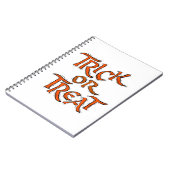 TRICK
OR
TREAT